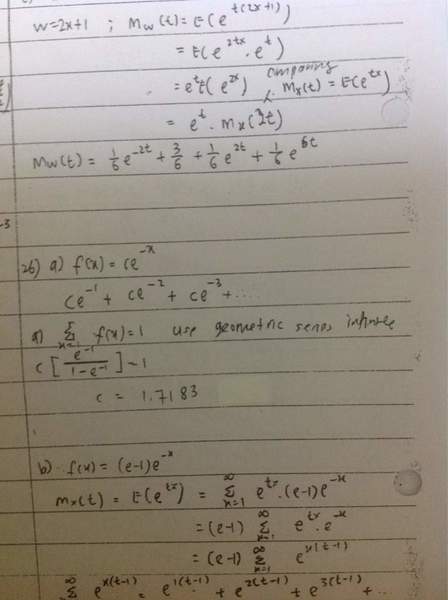 w=2x+1 ; Mw(t) = E(e^{t(2x+1)})
= E(e^{2tx} · e^t)
= e^t E(e^{2x}) comparing Mx(t) = E(e^{tx})
= e^t · Mx(2t)
Mw(t) = 1/6 e^{-2t} + 3/6 + 1/6 e^{2t} + 1/6 e^{6t}
-3
26) a) f(x) = ce^{-x}
ce^{-1} + ce^{-2} + ce^{-3} + ....
a) Σ_{x=1} f(x)=1 use geometric series infinite
c [e^{-1}/(1-e^{-1})] = 1
c = 1.7183
b) f(x) = (e-1)e^{-x}
Mx(t) = E(e^{tx}) = Σ_{x=1}^∞ e^{tx} · (e-1)e^{-x}
= (e-1) Σ_{x=1}^∞ e^{tx} · e^{-x}
= (e-1) Σ_{x=1}^∞ e^{x(t-1)}
Σ^∞ e^{x(t-1)} = e^{1(t-1)} + e^{2(t-1)} + e^{3(t-1)} + ...